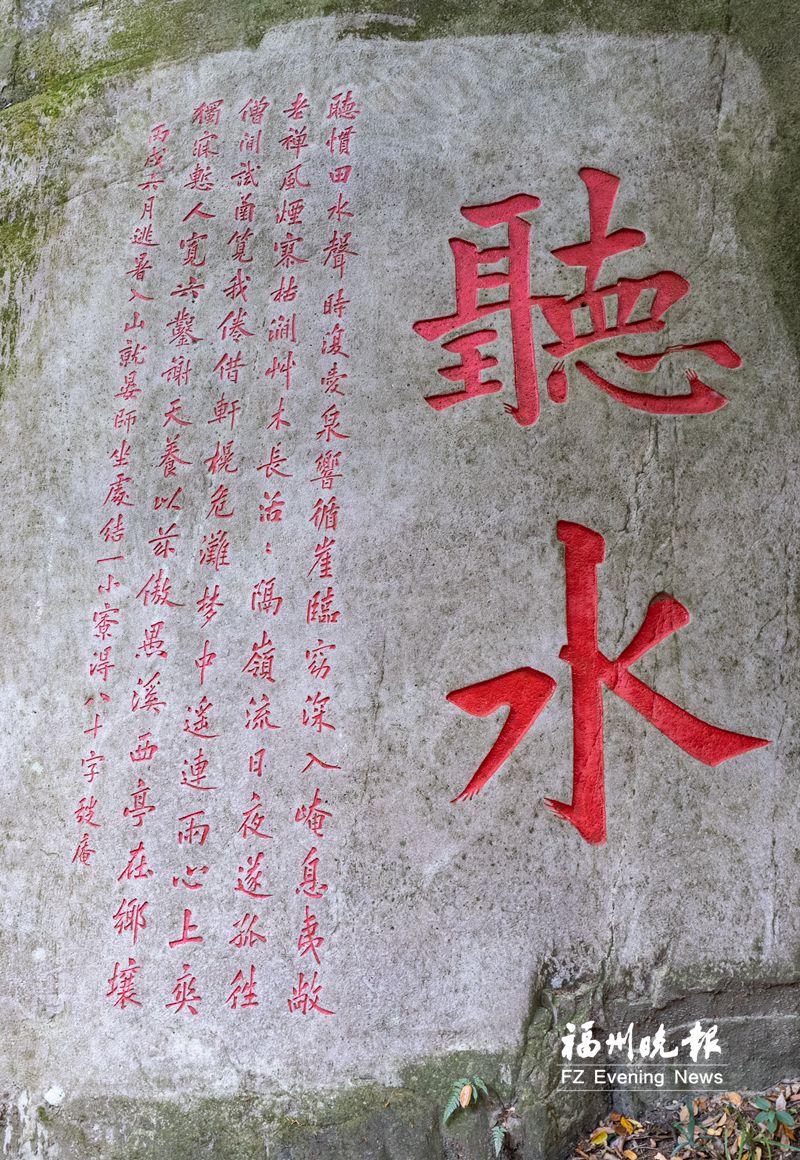 聽水
聽慣田水聲時復愛泉響循崖臨窈深入崦息夷敞
老禪風煙寨枯澗艸木長活〻隔嶺流日夜遂孤往
僧閒試筧我倦借軒榥危灘梦中遙連雨心上爽
獨寐慙人寬共鑿謝天養以茲傲愚溪西亭在鄉壤
丙戌六月逃暑入山就晏師坐處結一小寮得八十字弢庵
福州晚報
FZ Evening News